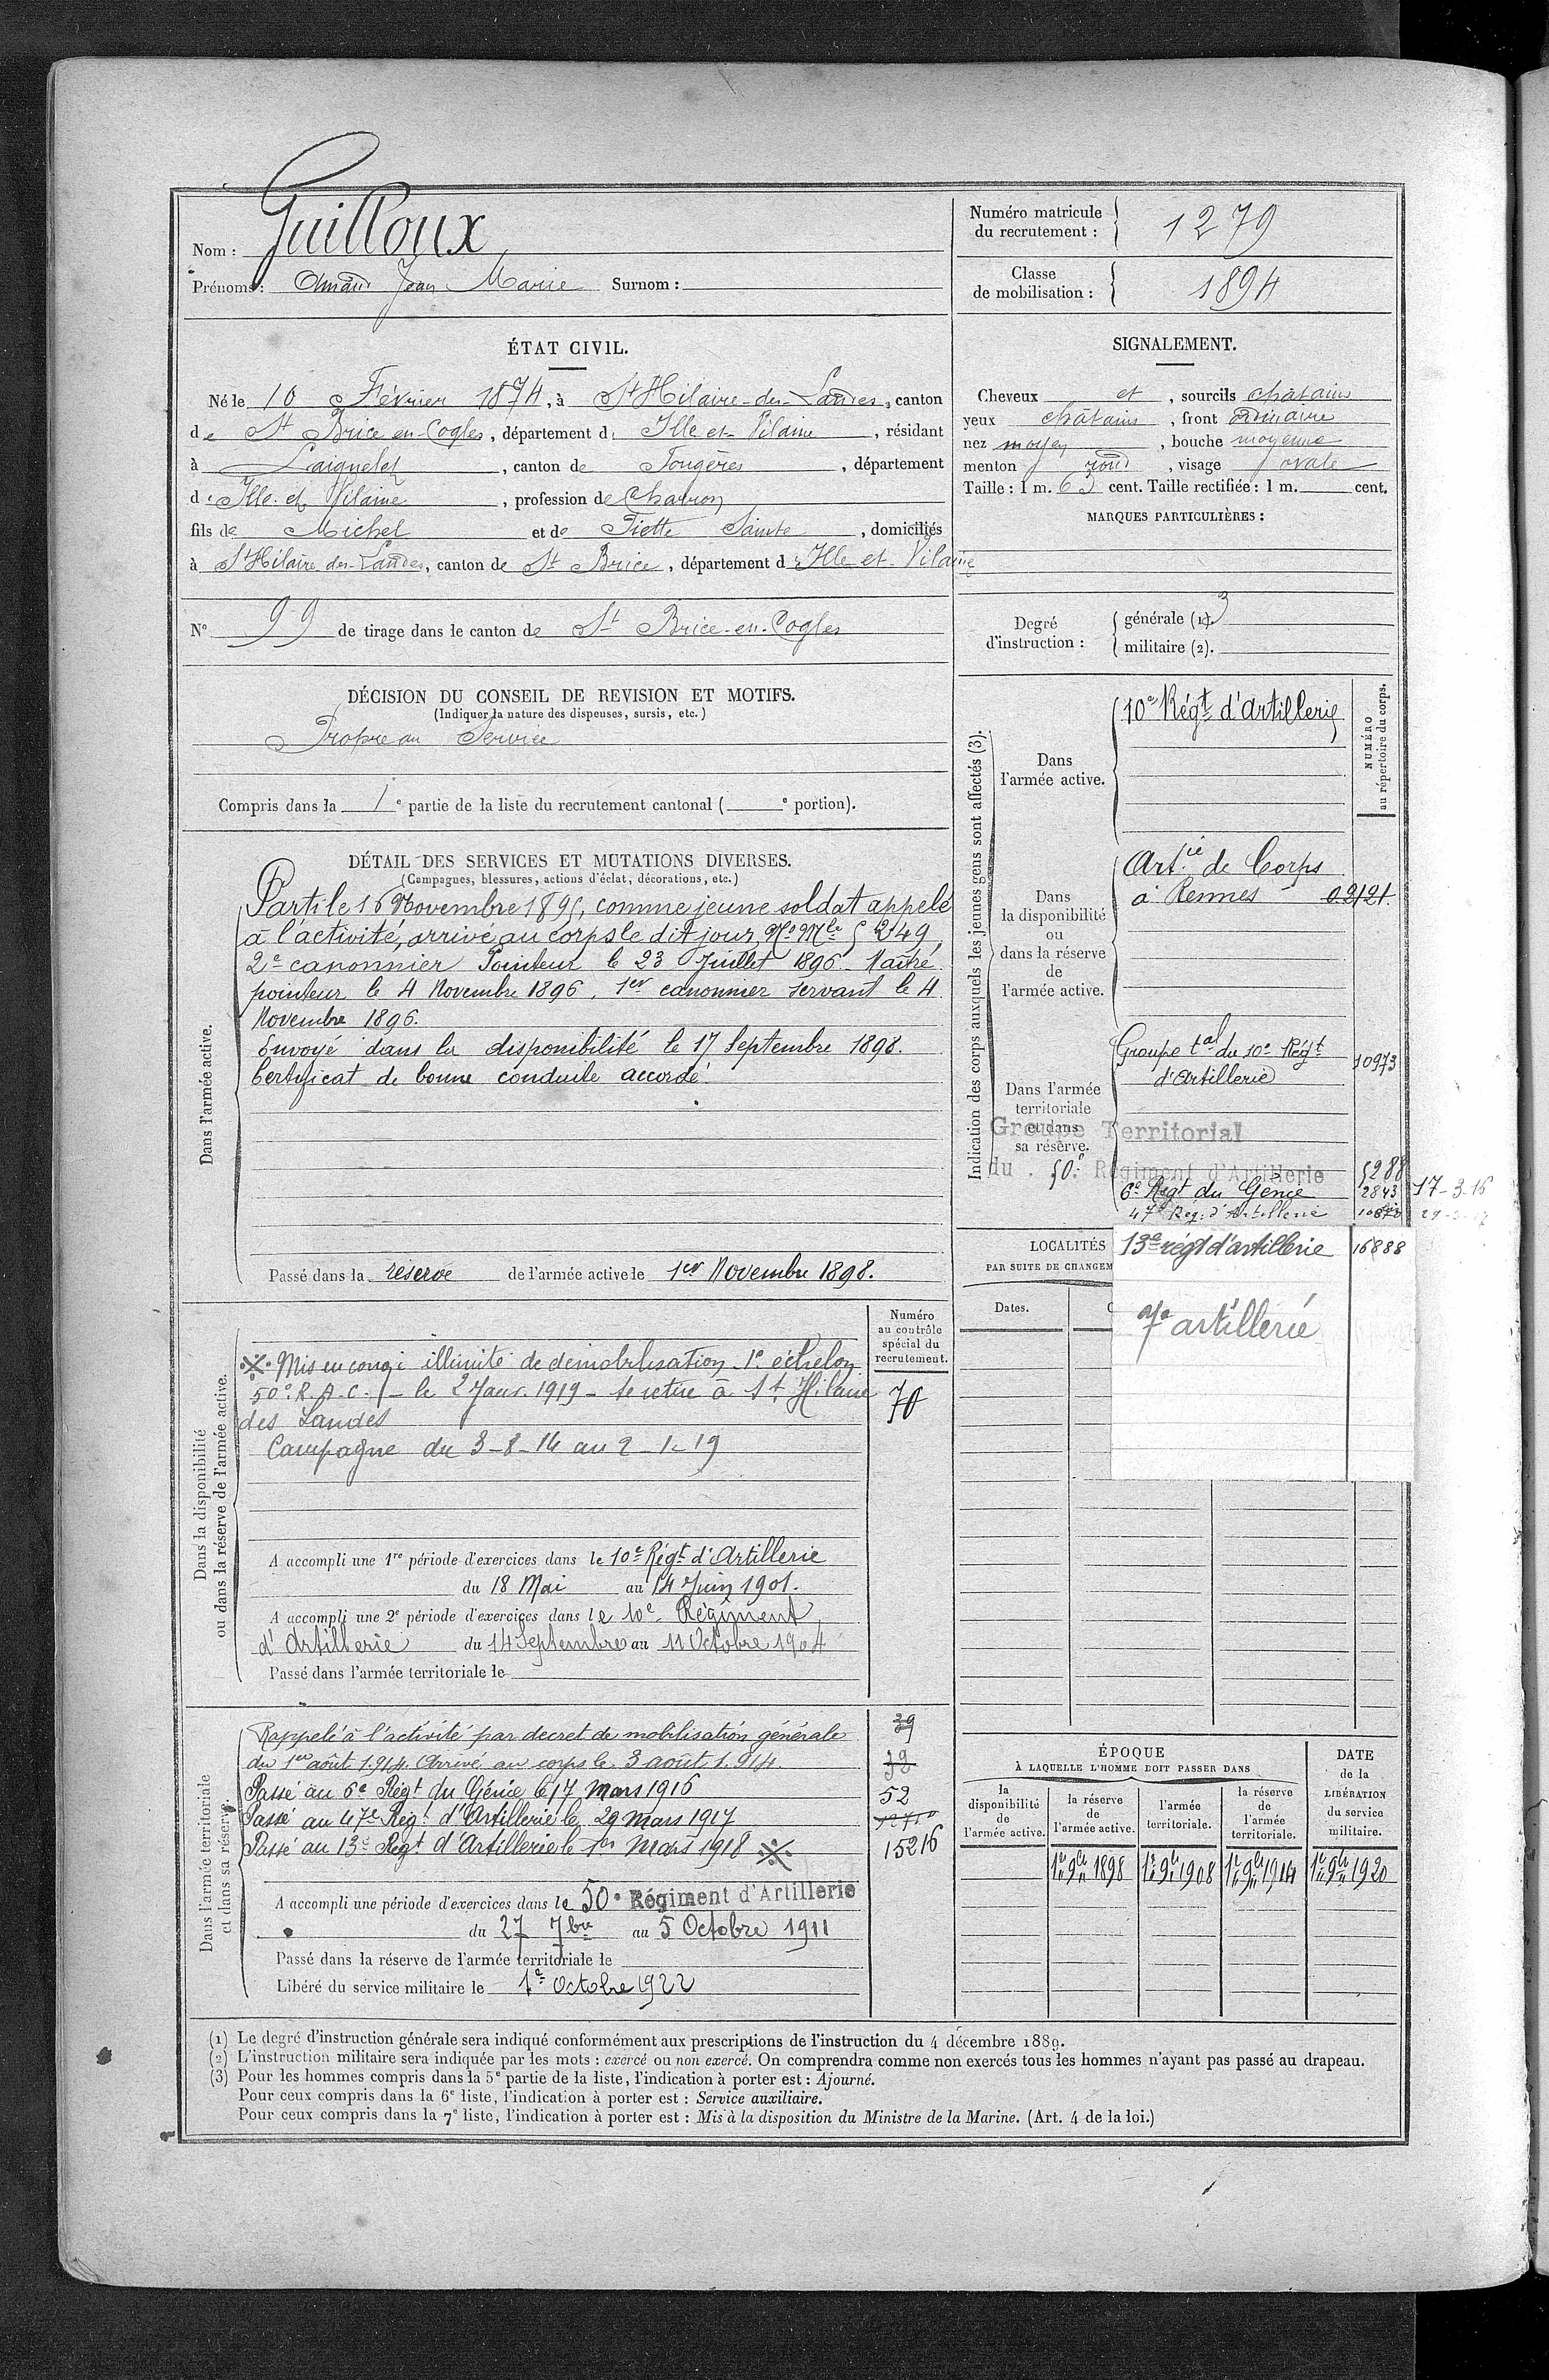 Nom : Guilloux
Prénoms : Amand Jean Marie Surnom :
Numéro matricule du recrutement : 1279
Classe de mobilisation : 1894
ÉTAT CIVIL.
Né le 10 Février 1874, à St Hilaire-des-Landes, canton
de St Brice en-Cogles, département d' Ille et Vilaine, résidant
à Laignelet, canton de Fougères, département
d' Ille et Vilaine, profession de Charron
fils de Michel et de Fiette Sainte, domiciliés
à St Hilaire des-Landes, canton de St Brice, département d' Ille et Vilaine
N° 99 de tirage dans le canton de St Brice-en-Cogles
SIGNALEMENT.
Cheveux et, sourcils châtains
yeux châtains, front ordinaire
nez moyen, bouche moyenne
menton rond, visage ovale
Taille : 1 m. 63 cent. Taille rectifiée : 1 m. cent.
MARQUES PARTICULIÈRES :
Degré d'instruction : générale (1). 3
militaire (2).
DÉCISION DU CONSEIL DE REVISION ET MOTIFS.
(Indiquer la nature des dispenses, sursis, etc.)
Propre au Service
Compris dans la 1e partie de la liste du recrutement cantonal ( e portion).
DÉTAIL DES SERVICES ET MUTATIONS DIVERSES.
(Campagnes, blessures, actions d'éclat, décorations, etc.)
Dans l'armée active.
Parti le 16 Novembre 1895, comme jeune soldat appelé
à l'activité, arrivé au corps le dit jour, No Mle 5249,
2e canonnier Pointeur le 23 Juillet 1896. Maître
pointeur le 4 Novembre 1896. 1er canonnier servant le 4
Novembre 1896.
Envoyé dans la disponibilité le 17 Septembre 1898.
Certificat de bonne conduite accordé.
Passé dans la réserve de l'armée active le 1er Novembre 1898.
Indication des corps auxquels les jeunes gens sont affectés (3).
NUMÉRO au répertoire du corps.
Dans l'armée active.
10e Régt d'Artillerie
Dans la disponibilité ou dans la réserve de l'armée active.
Artie de Corps
à Rennes 02121.
Dans l'armée territoriale et dans sa réserve.
Groupe tal du 10e Régt 10973
d'Artillerie
Groupe Territorial
du 50e Régiment d'Artillerie 5288
6e Régt du Génie 2843 17-3-16
47e Rég. d'Artillerie
13e régt d'artillerie 16888
7e artillerie
LOCALITÉS
PAR SUITE DE CHANGEM
Dates.
Dans la disponibilité ou dans la réserve de l'armée active.
Numéro au contrôle spécial du recrutement.
Mis en congé illimité de démobilisation 1e échelon
50e R.A.C. - le 2 Janv. 1919 - se retire à St Hilaire
des Landes
Campagne du 3-8-14 au 2-1-19
A accompli une 1re période d'exercices dans le 10e Régt d'Artillerie
du 18 Mai au 14 Juin 1901.
A accompli une 2e période d'exercices dans le 10e Régiment
d'Artillerie du 14 Septembre au 11 Octobre 1904
Passé dans l'armée territoriale le
Dans l'armée territoriale et dans sa réserve.
Rappelé à l'activité par décret de mobilisation générale 39
du 1er août 1.914. Arrivé au corps le 3 août 1.914. 32
Passé au 6e Régt du Génie le 17 Mars 1916 52
Passé au 47e Régt d'Artillerie le 29 Mars 1917
Passé au 13e Régt d'Artillerie le 1er Mars 1918 15216
A accompli une période d'exercices dans le 50e Régiment d'Artillerie
du 27 7bre au 5 Octobre 1911
Passé dans la réserve de l'armée territoriale le
Libéré du service militaire le 1er Octobre 1922
ÉPOQUE
À LAQUELLE L'HOMME DOIT PASSER DANS
la disponibilité de l'armée active.
la réserve de l'armée active.
l'armée territoriale.
la réserve de l'armée territoriale.
DATE de la LIBÉRATION du service militaire.
1er 9bre 1898 1er 9bre 1908 1er 9bre 1914 1er 9bre 1920
(1) Le degré d'instruction générale sera indiqué conformément aux prescriptions de l'instruction du 4 décembre 1889.
(2) L'instruction militaire sera indiquée par les mots : exercé ou non exercé. On comprendra comme non exercés tous les hommes n'ayant pas passé au drapeau.
(3) Pour les hommes compris dans la 5e partie de la liste, l'indication à porter est : Ajourné.
Pour ceux compris dans la 6e liste, l'indication à porter est : Service auxiliaire.
Pour ceux compris dans la 7e liste, l'indication à porter est : Mis à la disposition du Ministre de la Marine. (Art. 4 de la loi.)